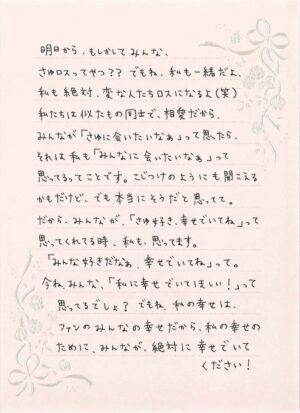 明日から、もしかしてみんな、
さゆロスってやつ?? でもね、私も一緒だよ、
私も絶対、変な人たちロスになるよ(笑)
私たちは似たもの同士で、相思だから、
みんなが「さゆに会いたいなぁ」って思ったら、
それは私も「みんなに会いたいなぁ」って
思ってるってことです。こじつけのようにも聞こえる
かもだけど、でも本当にそうだと思ってて。
だから、みんなが、「さゆ好き、幸せでいてね」って
思ってくれてる時、私も、思ってます。
「みんな好きだなぁ、幸せでいてね」って。
今ね、みんな、「私に幸せでいてほしい!」って
思ってるでしょ? でもね、私の幸せは、
ファンのみんなの幸せだから、私の幸せの
ために、みんなが、絶対に幸せでいて
ください!